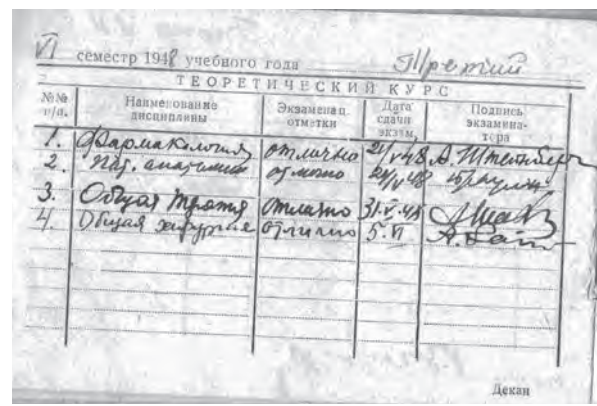 VI семестр 1948 учебного года Третий
ТЕОРЕТИЧЕСКИЙ КУРС
№№ п/п. Наименование дисциплины Экзаменац. отметки Дата сдачи экзам. Подпись экзаменатора
1. Фармакология отлично 21/V 48 А. Штейнберг
2. Пат. анатомия отлично 24/V 48
3. Общая отлично 31.V.48
4. Общая хирургия отлично 5.VI
Декан